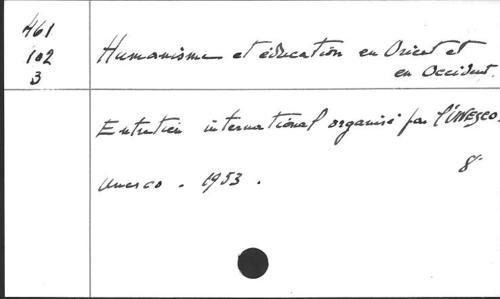 461
102
3
Humanisme et éducation en Orient et
en Occident.
Entretien international organisé par l'UNESCO.
8°
Unesco. 1953.